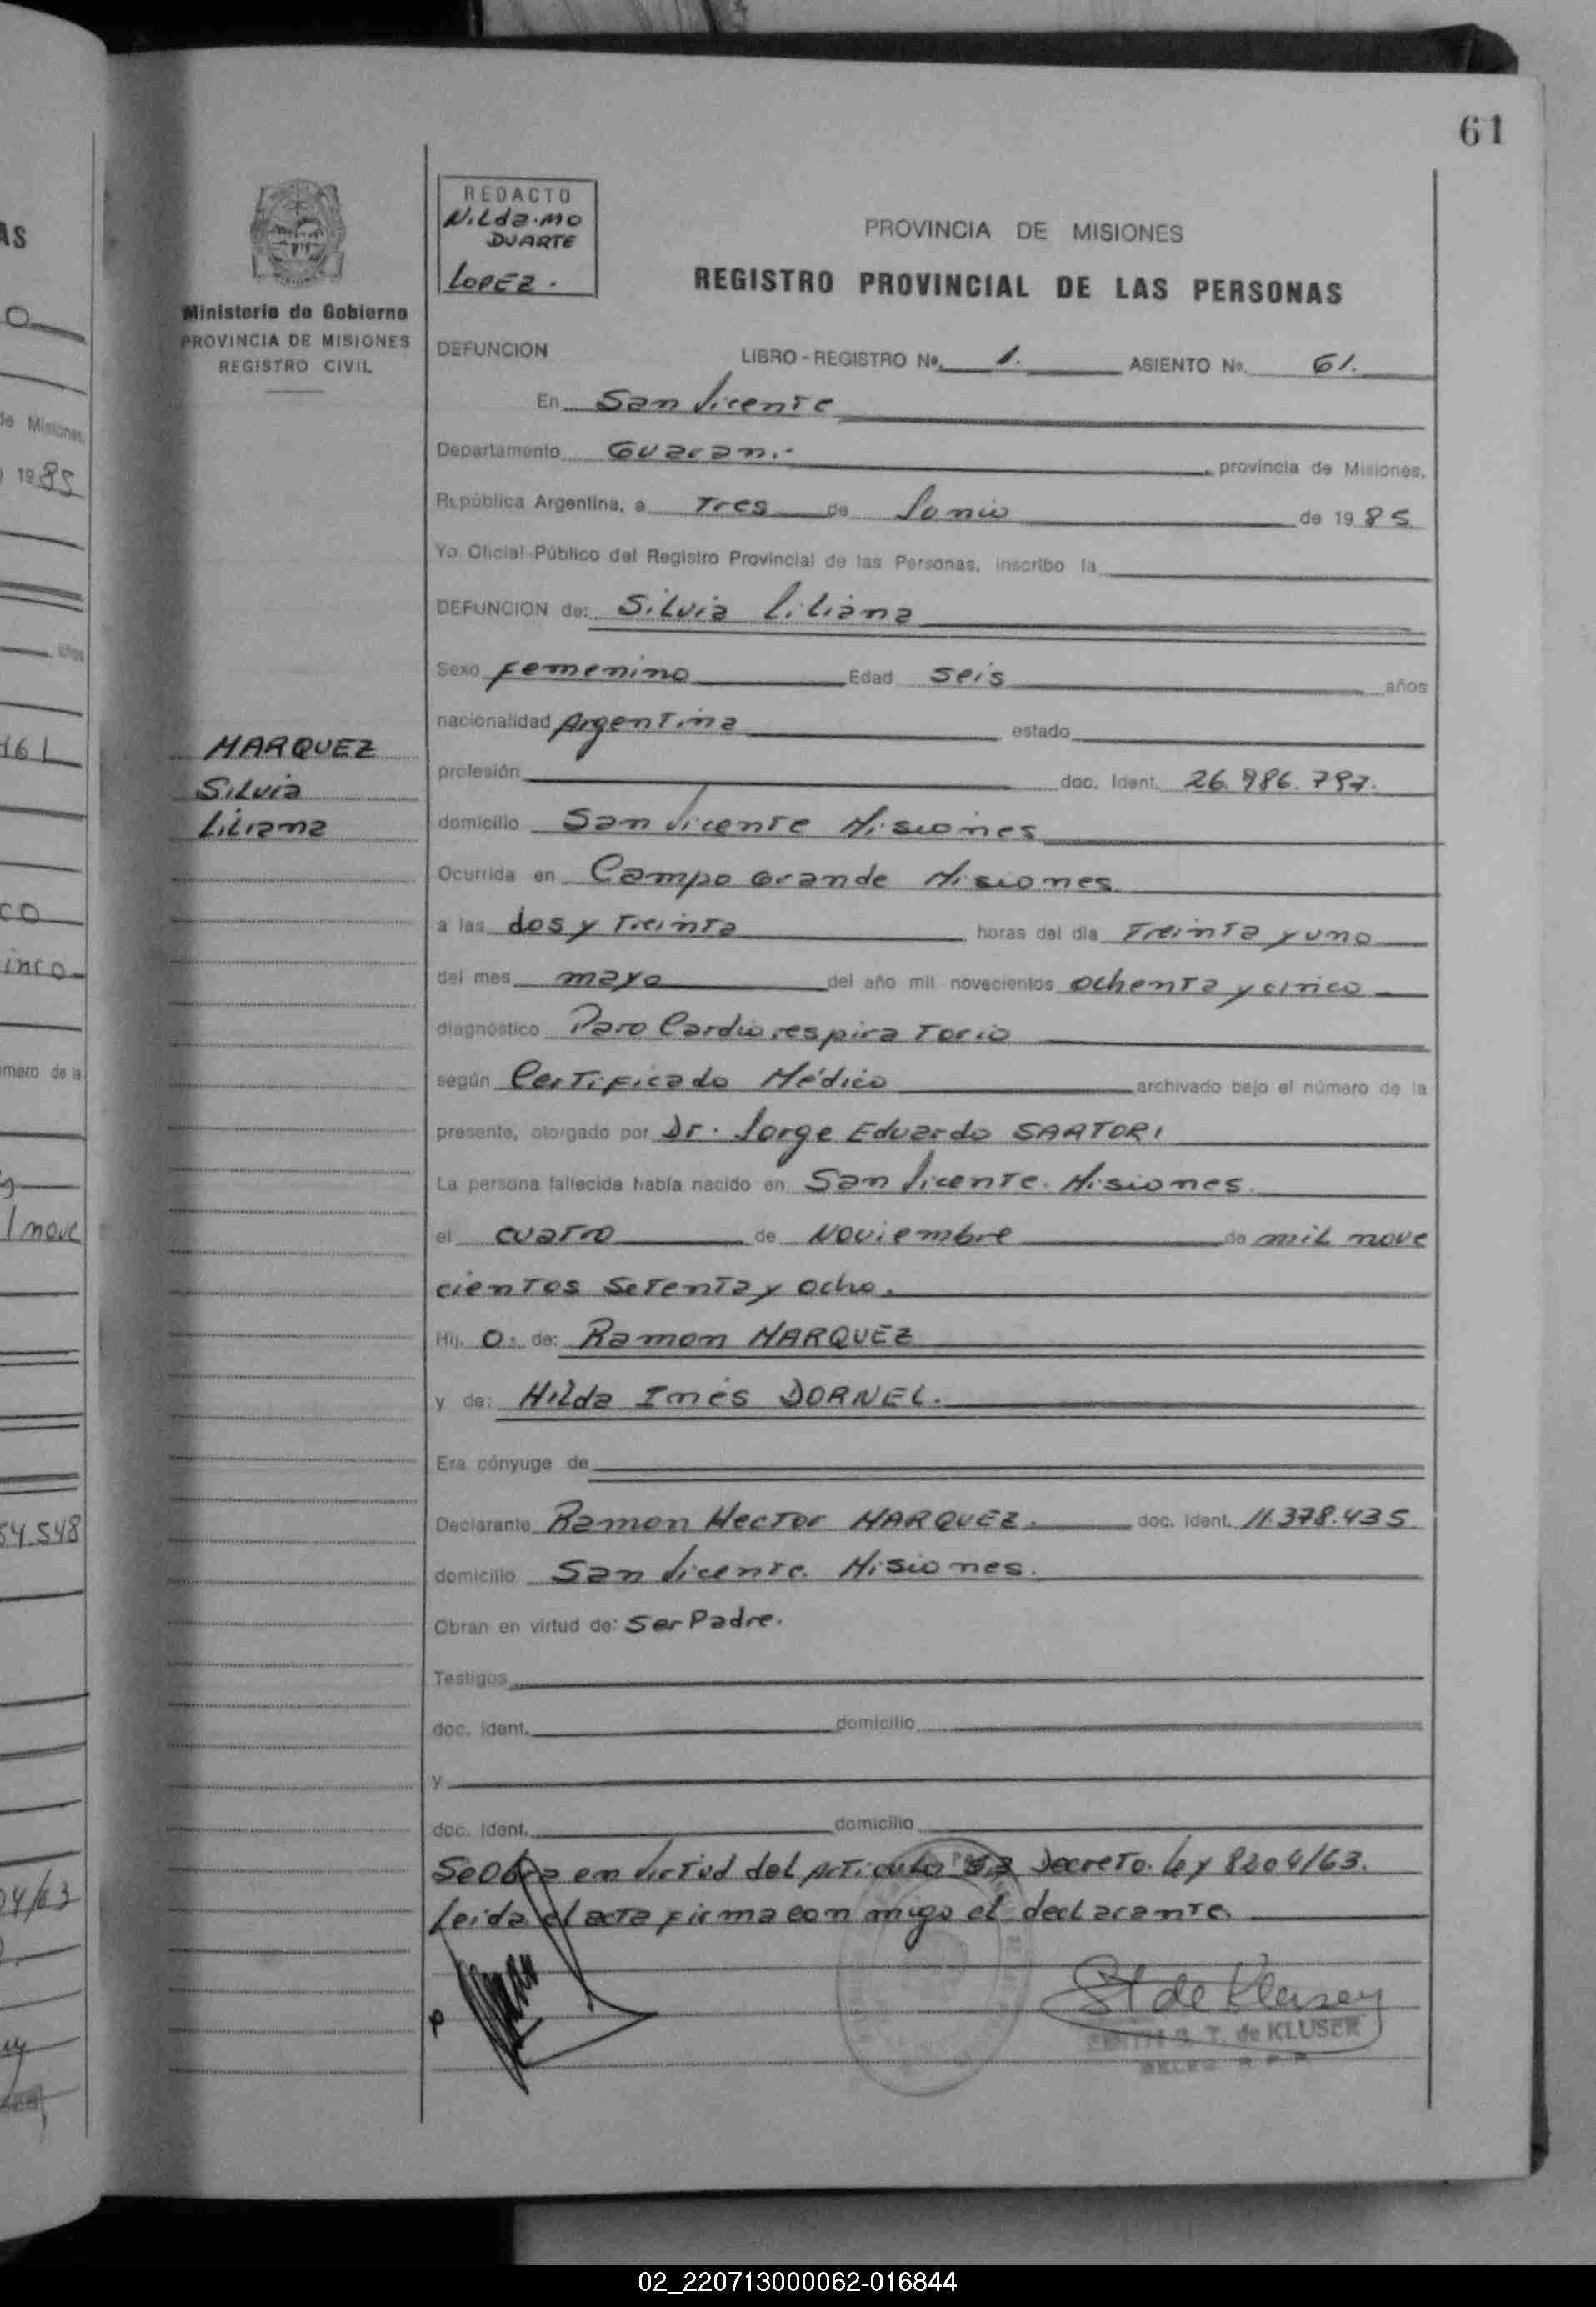 61
REDACTO
Nilda.mo
DUARTE
LOPEZ.
PROVINCIA DE MISIONES
REGISTRO PROVINCIAL DE LAS PERSONAS
Ministerio de Gobierno
PROVINCIA DE MISIONES
REGISTRO CIVIL
DEFUNCION LIBRO - REGISTRO Nº. 1. ASIENTO Nº. 61.
En San Vicente
Departamento Guaran.- provincia de Misiones,
República Argentina, a Tres de Junio de 1985
Yo Oficial Público del Registro Provincial de las Personas, inscribo la
DEFUNCION de: Silvia Liliana
Sexo Femenino Edad seis años
nacionalidad Argentina estado
MARQUEZ
Silvia
Liliana
profesión doc. Ident. 26.986.797.
domicilio San Vicente Misiones
Ocurrida en Campo Grande Misiones
a las dos y Treinta horas del día Treinta y uno
del mes mayo del año mil novecientos ochenta y cinco
diagnóstico Paro Cardio respiratorio
según Certificado Médico archivado bajo el número de la
presente, otorgado por Dr. Jorge Eduardo SARTORI
La persona fallecida había nacido en San Vicente. Misiones.
el cuatro de Noviembre de mil nove
cientos Setenta y ocho.
Hij. o. de: Ramon MARQUEZ
y de: Hilda Inés DORNEL.
Era cónyuge de
Declarante Ramon Hector MARQUEZ. doc. ident. 11.378.435
domicilio San Vicente. Misiones.
Obran en virtud de: Ser Padre.
Testigos
doc. ident. domicilio
y
doc. ident. domicilio
Se Obra en virtud del Articulo Decreto. ley 8204/63.
Leida el acta firma con migo el declarante.
St de Kluser
S. T. de KLUSER
02_220713000062-016844